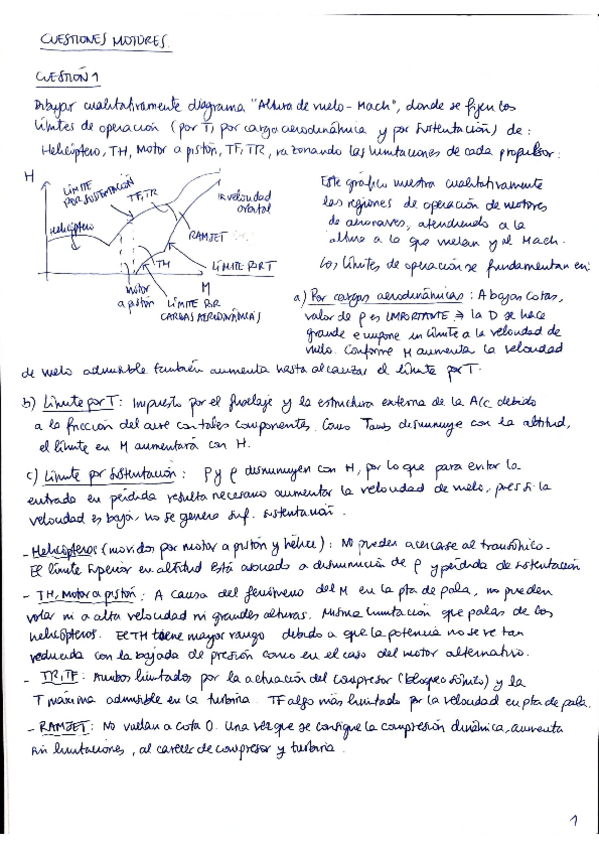 CUESTIONES MOTORES.
CUESTIÓN 1
Dibujar cualitativamente diagrama "Altura de vuelo - Mach", donde se fijen los
límites de operación (por T, por carga aerodinámica y por sustentación) de:
Helicóptero, TH, Motor a pistón, TF, TR, razonando las limitaciones de cada propulsor:
H
LÍMITE
POR SUSTENTACIÓN
TF, TR
Helicóptero
velocidad
orbital
RAMJET
TH
LÍMITE POR T
M
motor
a pistón
LÍMITE POR
CARGAS AERODINÁMICAS
Este gráfico muestra cualitativamente
las regiones de operación de motores
de aeronaves, atendiendo a la
altura a la que vuelan y el Mach.
Los límites de operación se fundamentan en:
a) Por cargas aerodinámicas: A bajas cotas,
valor de ρ es IMPORTANTE ⇒ la D se hace
grande e impone un límite a la velocidad de
vuelo. Conforme H aumenta la velocidad
de vuelo admisible también aumenta hasta alcanzar el límite por T.
b) Límite por T: Impuesto por el fuselaje y la estructura externa de la A/C debido
a la fricción del aire con tales componentes. Como Tamb disminuye con la altitud,
el límite en M aumentará con H.
c) Límite por sustentación: P y ρ disminuyen con H, por lo que para evitar la
entrada en pérdida resulta necesario aumentar la velocidad de vuelo, pues si la
velocidad es baja, no se genera suf. sustentación.
- Helicópteros (movidos por motor a pistón y hélice): No pueden acercarse al transónico.
El límite superior en altitud está asociado a disminución de ρ y pérdida de sustentación
- TH, Motor a pistón: A causa del fenómeno del M en la pta de pala, no pueden
volar ni a alta velocidad ni grandes alturas. Misma limitación que palas de los
helicópteros. El TH tiene mayor rango debido a que la potencia no se ve tan
reducida con la bajada de presión como en el caso del motor alternativo.
- TR, TF: Ambos limitados por la actuación del compresor (bloqueo sónico) y la
T máxima admisible en la turbina. TF algo más limitado por la velocidad en pta de pala.
- RAMJET: No vuelan a cota 0. Una vez que se consigue la compresión dinámica, aumenta
sin limitaciones, al carecer de compresor y turbina.
1